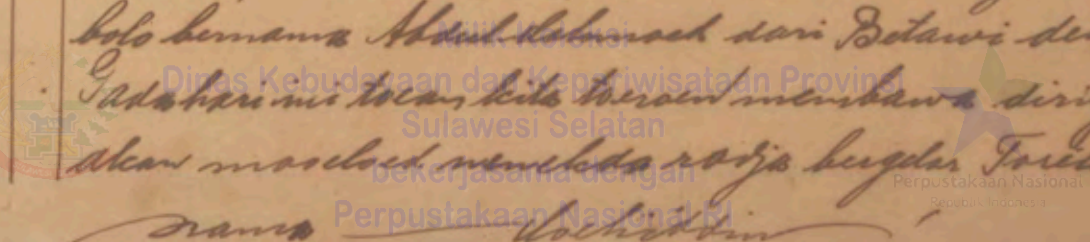 bolo bernama Abdul dari Betawi de
Pada hari ini toean kita toeroen membawa diri
akan moeloed radja bergelar
nama
Milik Koleksi
Dinas Kebudayaan dan Kepariwisataan Provinsi
Sulawesi Selatan
bekerjasama dengan
Perpustakaan Nasional RI
Perpustakaan Nasional
Republik Indonesia